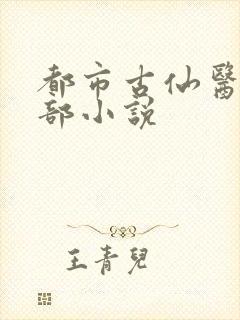 都市古仙醫
部小說
王青兒